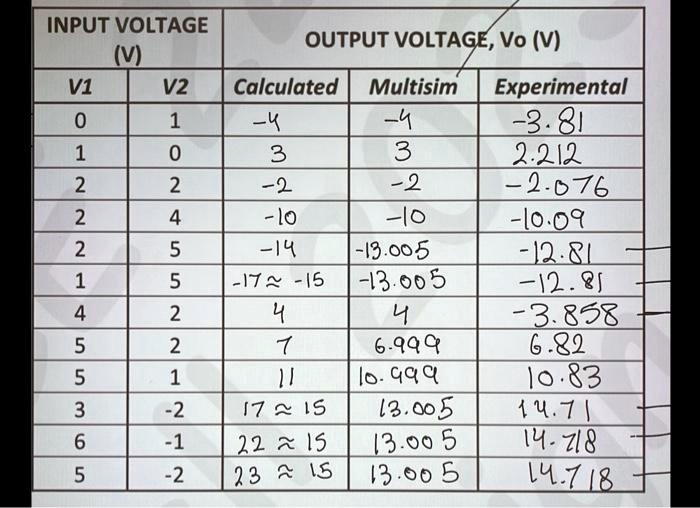 INPUT VOLTAGE (V) OUTPUT VOLTAGE, Vo (V)
V1 V2 Calculated Multisim Experimental
0 1 -4 -4 -3.81
1 0 3 3 2.212
2 2 -2 -2 -2.076
2 4 -10 -10 -10.09
2 5 -14 -13.005 -12.81
1 5 -17 ≈ -15 -13.005 -12.81
4 2 4 4 -3.858
5 2 7 6.999 6.82
5 1 11 10.999 10.83
3 -2 17 ≈ 15 13.005 14.71
6 -1 22 ≈ 15 13.005 14.718
5 -2 23 ≈ 15 13.005 14.718